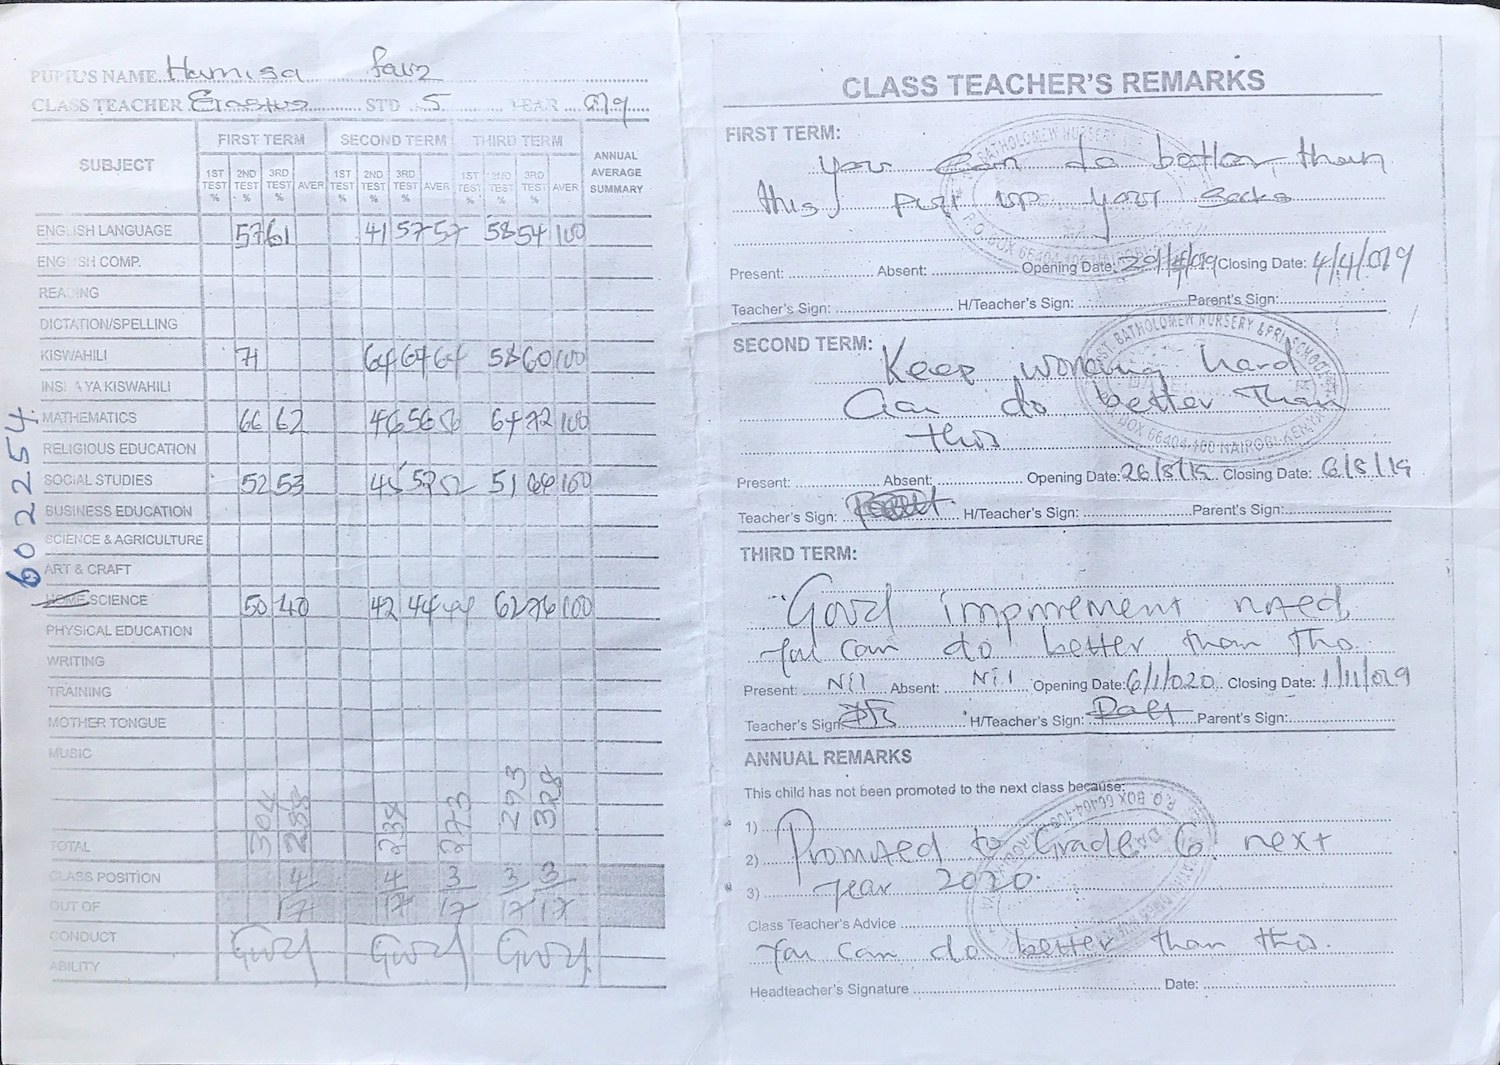 PUPIL'S NAME Hamisa Faiz
CLASS TEACHER Erastus STD 5 YEAR 019
SUBJECT FIRST TERM SECOND TERM THIRD TERM ANNUAL AVERAGE SUMMARY
1ST TEST % 2ND TEST % 3RD TEST % AVER 1ST TEST % 2ND TEST % 3RD TEST % AVER 1ST TEST % 2ND TEST % 3RD TEST % AVER
ENGLISH LANGUAGE 57 61 41 57 57 58 54 100
ENGLISH COMP.
READING
DICTATION/SPELLING
KISWAHILI 71 64 64 64 58 60 100
INSHA YA KISWAHILI
MATHEMATICS 66 62 46 56 56 64 72 100
RELIGIOUS EDUCATION
SOCIAL STUDIES 52 53 45 52 52 51 64 100
BUSINESS EDUCATION
SCIENCE & AGRICULTURE
ART & CRAFT
HOME SCIENCE 50 40 42 44 44 62 76 100
PHYSICAL EDUCATION
WRITING
TRAINING
MOTHER TONGUE
MUSIC
TOTAL 304 288 238 273 293 328
CLASS POSITION 4 4 3 3 3
OUT OF 17 17 17 17 17
CONDUCT Good Good Good
ABILITY
602254
CLASS TEACHER'S REMARKS
FIRST TERM:
You can do better than
this, pull up your socks
Present: Absent: Opening Date: 29/4/019 Closing Date: 4/4/019
Teacher's Sign: H/Teacher's Sign: Parent's Sign:
SECOND TERM:
Keep working hard
Can do better than
this
Present: Absent: Opening Date: 26/8/15 Closing Date: 6/8/19
Teacher's Sign: H/Teacher's Sign: Parent's Sign:
THIRD TERM:
Good improvement noted,
You can do better than this.
Present: Nil Absent: Nil Opening Date: 6/1/020 Closing Date: 1/11/019
Teacher's Sign H/Teacher's Sign: Parent's Sign:
ANNUAL REMARKS
This child has not been promoted to the next class because:
1)
2) Promoted to Grade 6 next
3) year 2020.
Class Teacher's Advice
You can do better than this.
Headteacher's Signature Date:
ST. BATHOLOMEW NURSERY & PRI SCHOOL
P.O. BOX 66404-100 NAIROBI-KENYA